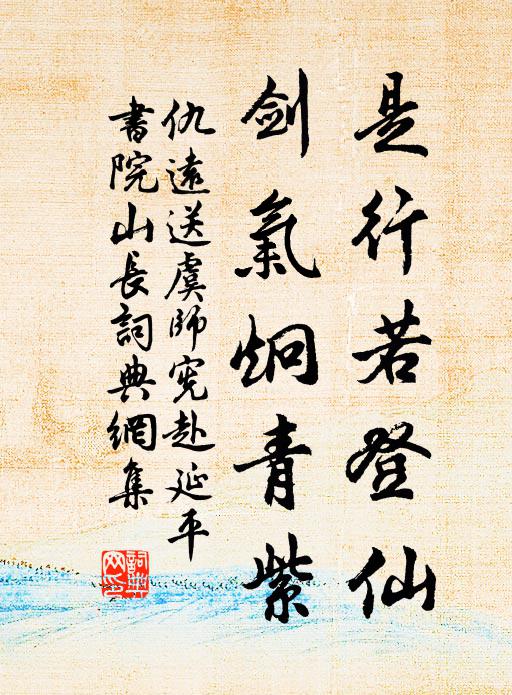 是行若登仙
劍氣炯青紫
仇遠送虞師憲赴延平
書院山長詞典網集